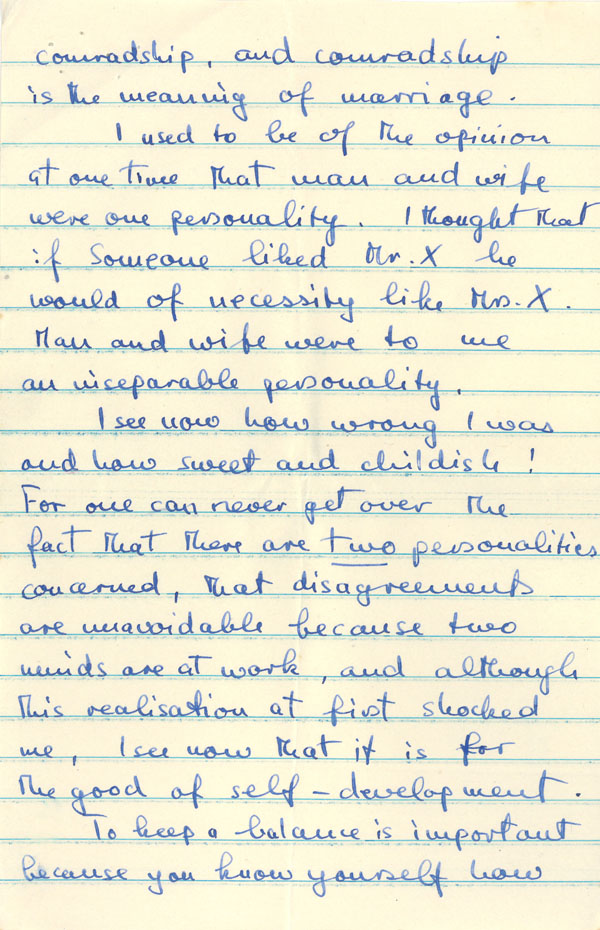 comradship, and comradship
is the meaning of marriage.
I used to be of the opinion
at one time that man and wife
were one personality. I thought that
if Someone liked Mr. X he
would of necessity like Mrs. X.
Man and wife were to me
an inseparable personality.
I see now how wrong I was
and how sweet and childish!
For one can never get over the
fact that there are two personalities
concerned, that disagreements
are unavoidable because two
minds are at work, and although
this realisation at first shocked
me, I see now that it is for
the good of self-development.
To keep a balance is important
because you know yourself how